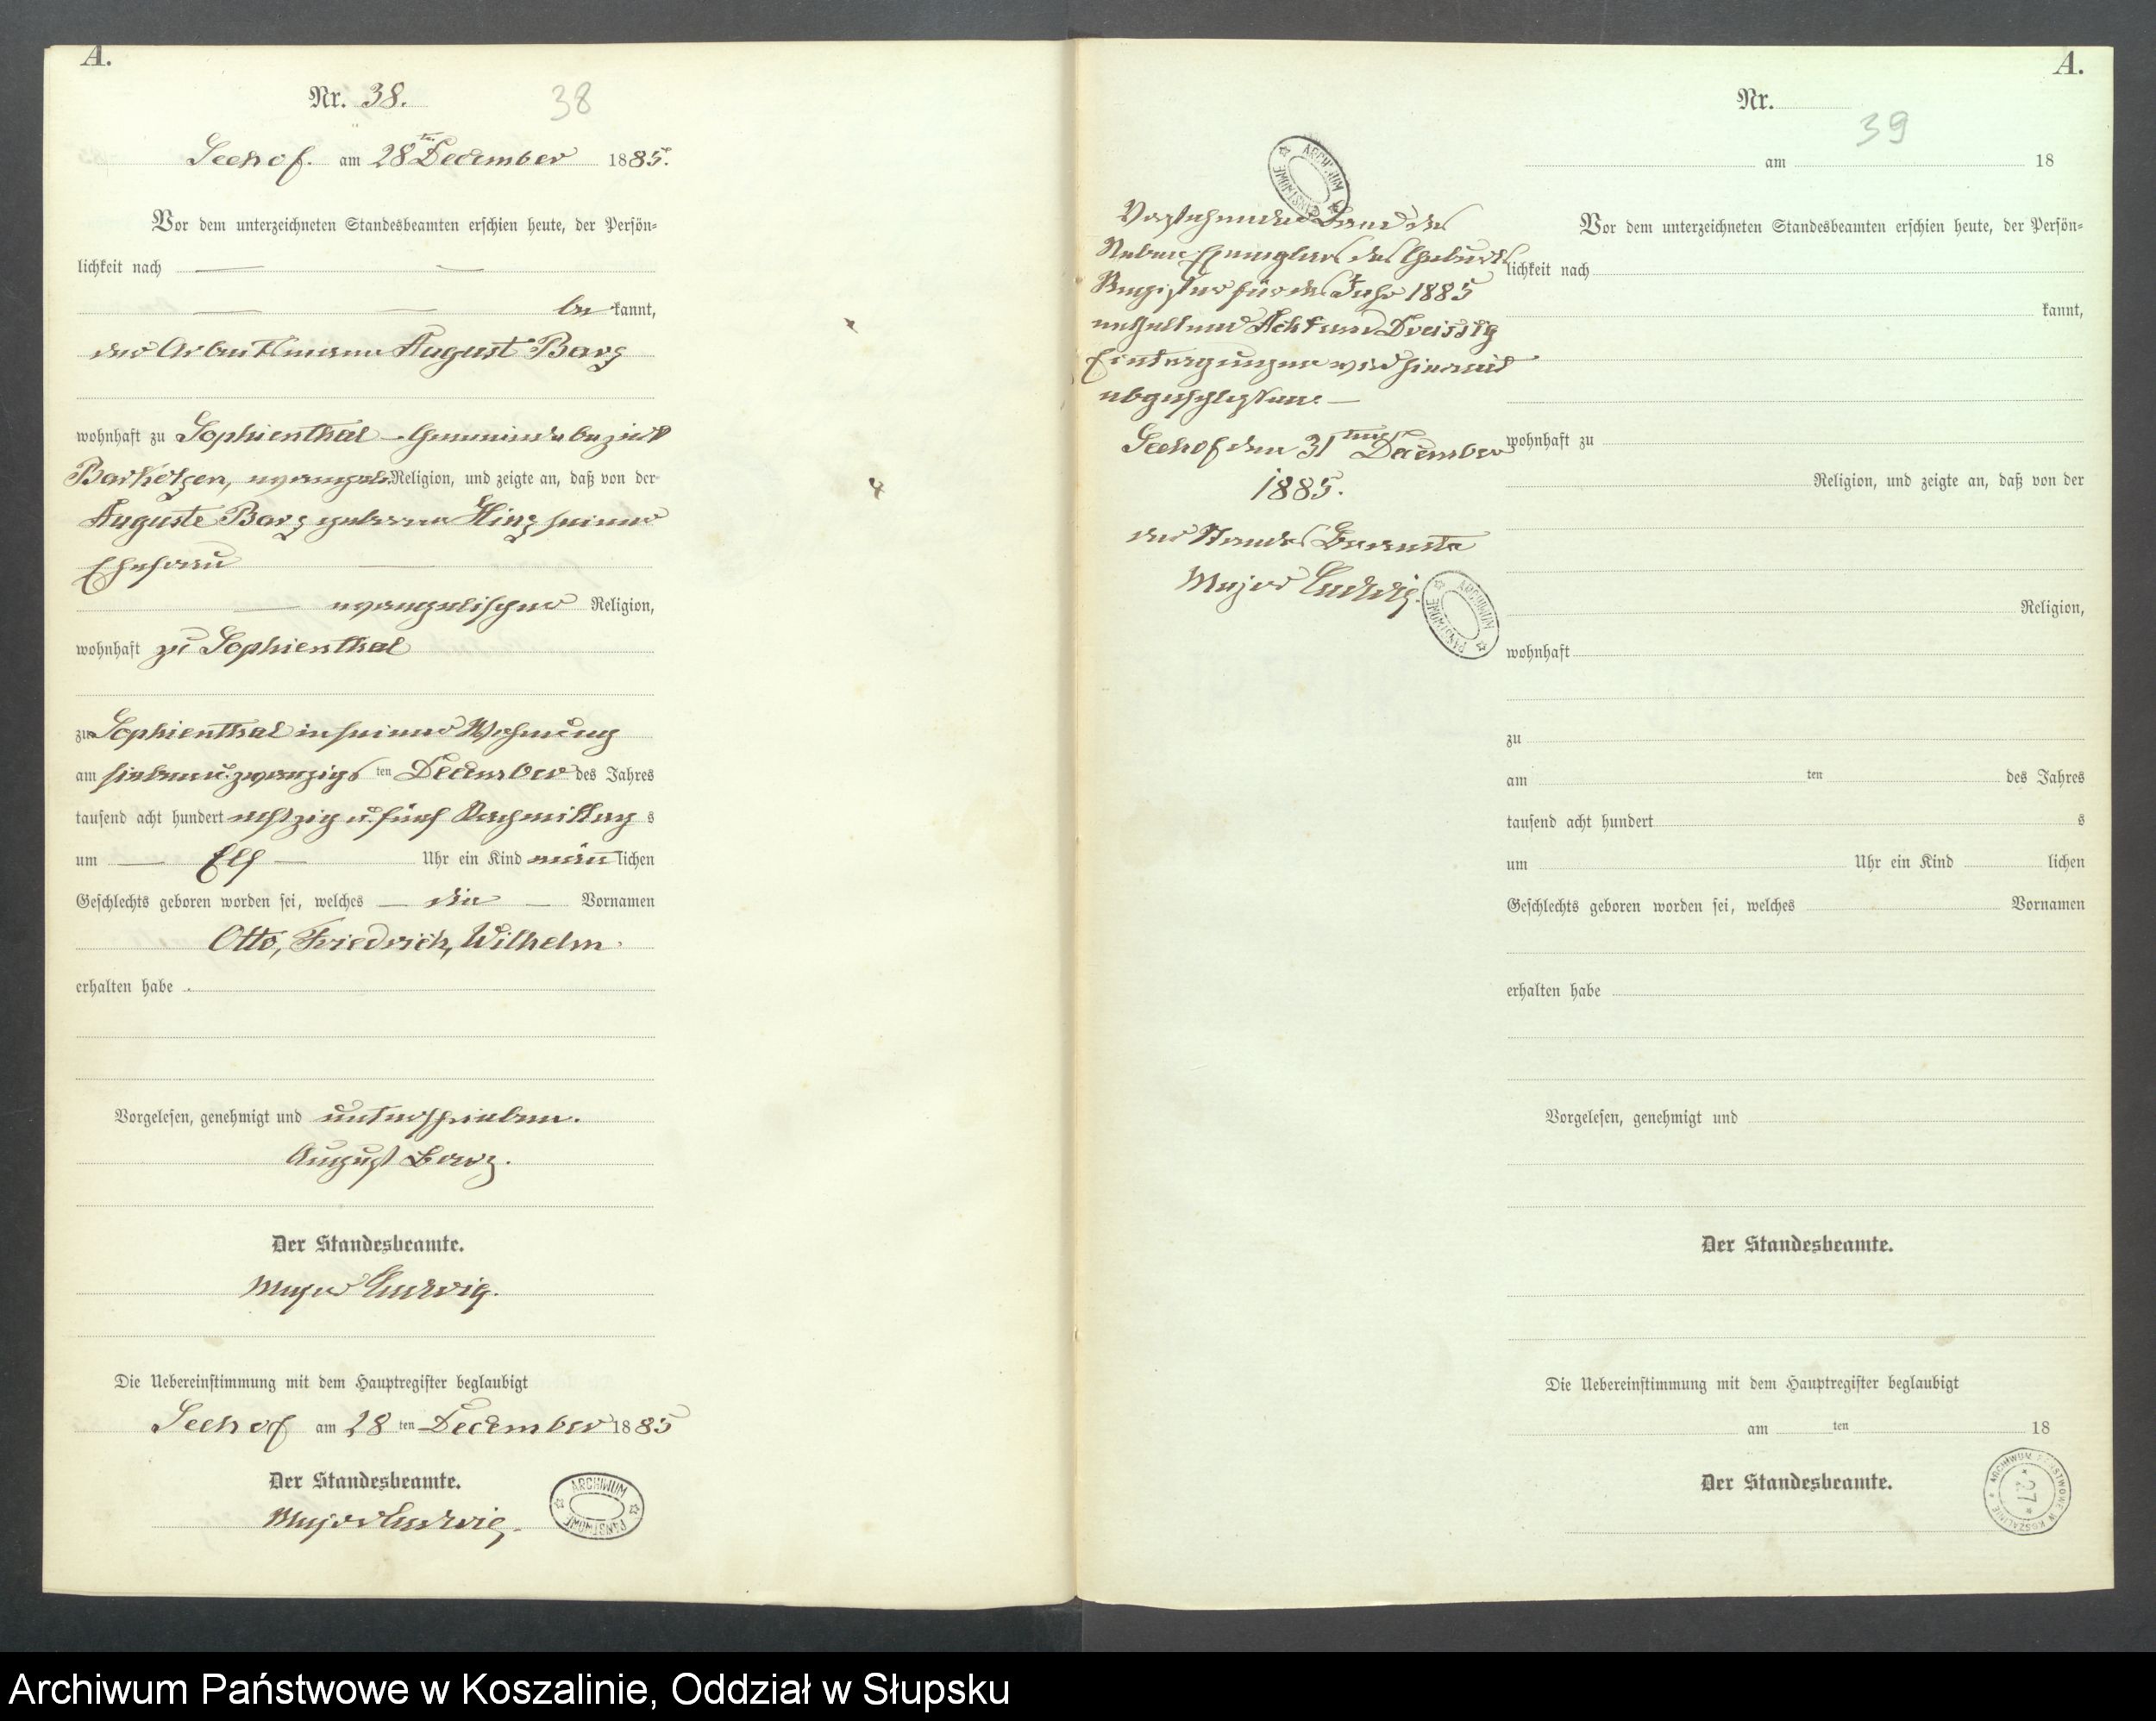 A.
Nr. 38.
38
Seehof. am 28ten December 1885.
Vor dem unterzeichneten Standesbeamten erschien heute, der Persön-
lichkeit nach
be kannt,
der Arbeitsmann August Barz
wohnhaft zu Sophienthal – Gemeindebezirk
Barkotzen, evangel. Religion, und zeigte an, daß von der
Auguste Barz geborene Hinz seiner
Ehefrau
evangelischer Religion,
wohnhaft zu Sophienthal
zu Sophienthal in seiner Wohnung
am sieben u. zwanzigs ten December des Jahres
tausend acht hundert achtzig u. fünf Nachmittag s
um Elf Uhr ein Kind männ lichen
Geschlechts geboren worden sei, welches die Vornamen
Otto, Friedrich, Wilhelm
erhalten habe .
Vorgelesen, genehmigt und unterschrieben.
August Barz.
Der Standesbeamte.
Major Ludwig.
Die Uebereinstimmung mit dem Hauptregister beglaubigt
Seehof am 28 ten December 1885
Der Standesbeamte.
Major Ludwig.
ARCHIWUM PAŃSTWOWE
Vorstehender Band des
Neben Exemplars des Geburts
Register für das Jahr 1885
enthaltend Acht und Dreissig
Eintragungen wird hiermit
abgeschlossen. —
Seehof den 31ten December
1885.
der Standes Beamte
Major Ludwig.
ARCHIWUM PAŃSTWOWE
ARCHIWUM PAŃSTWOWE
A.
Nr.
39
am 18
Vor dem unterzeichneten Standesbeamten erschien heute, der Persön-
lichkeit nach
kannt,
wohnhaft zu
Religion, und zeigte an, daß von der
Religion,
wohnhaft
zu
am ten des Jahres
tausend acht hundert s
um Uhr ein Kind lichen
Geschlechts geboren worden sei, welches Vornamen
erhalten habe
Vorgelesen, genehmigt und
Der Standesbeamte.
Die Uebereinstimmung mit dem Hauptregister beglaubigt
am ten 18
Der Standesbeamte.
ARCHIWUM PAŃSTWOWE W KOSZALINIE
27
Archiwum Państwowe w Koszalinie, Oddział w Słupsku